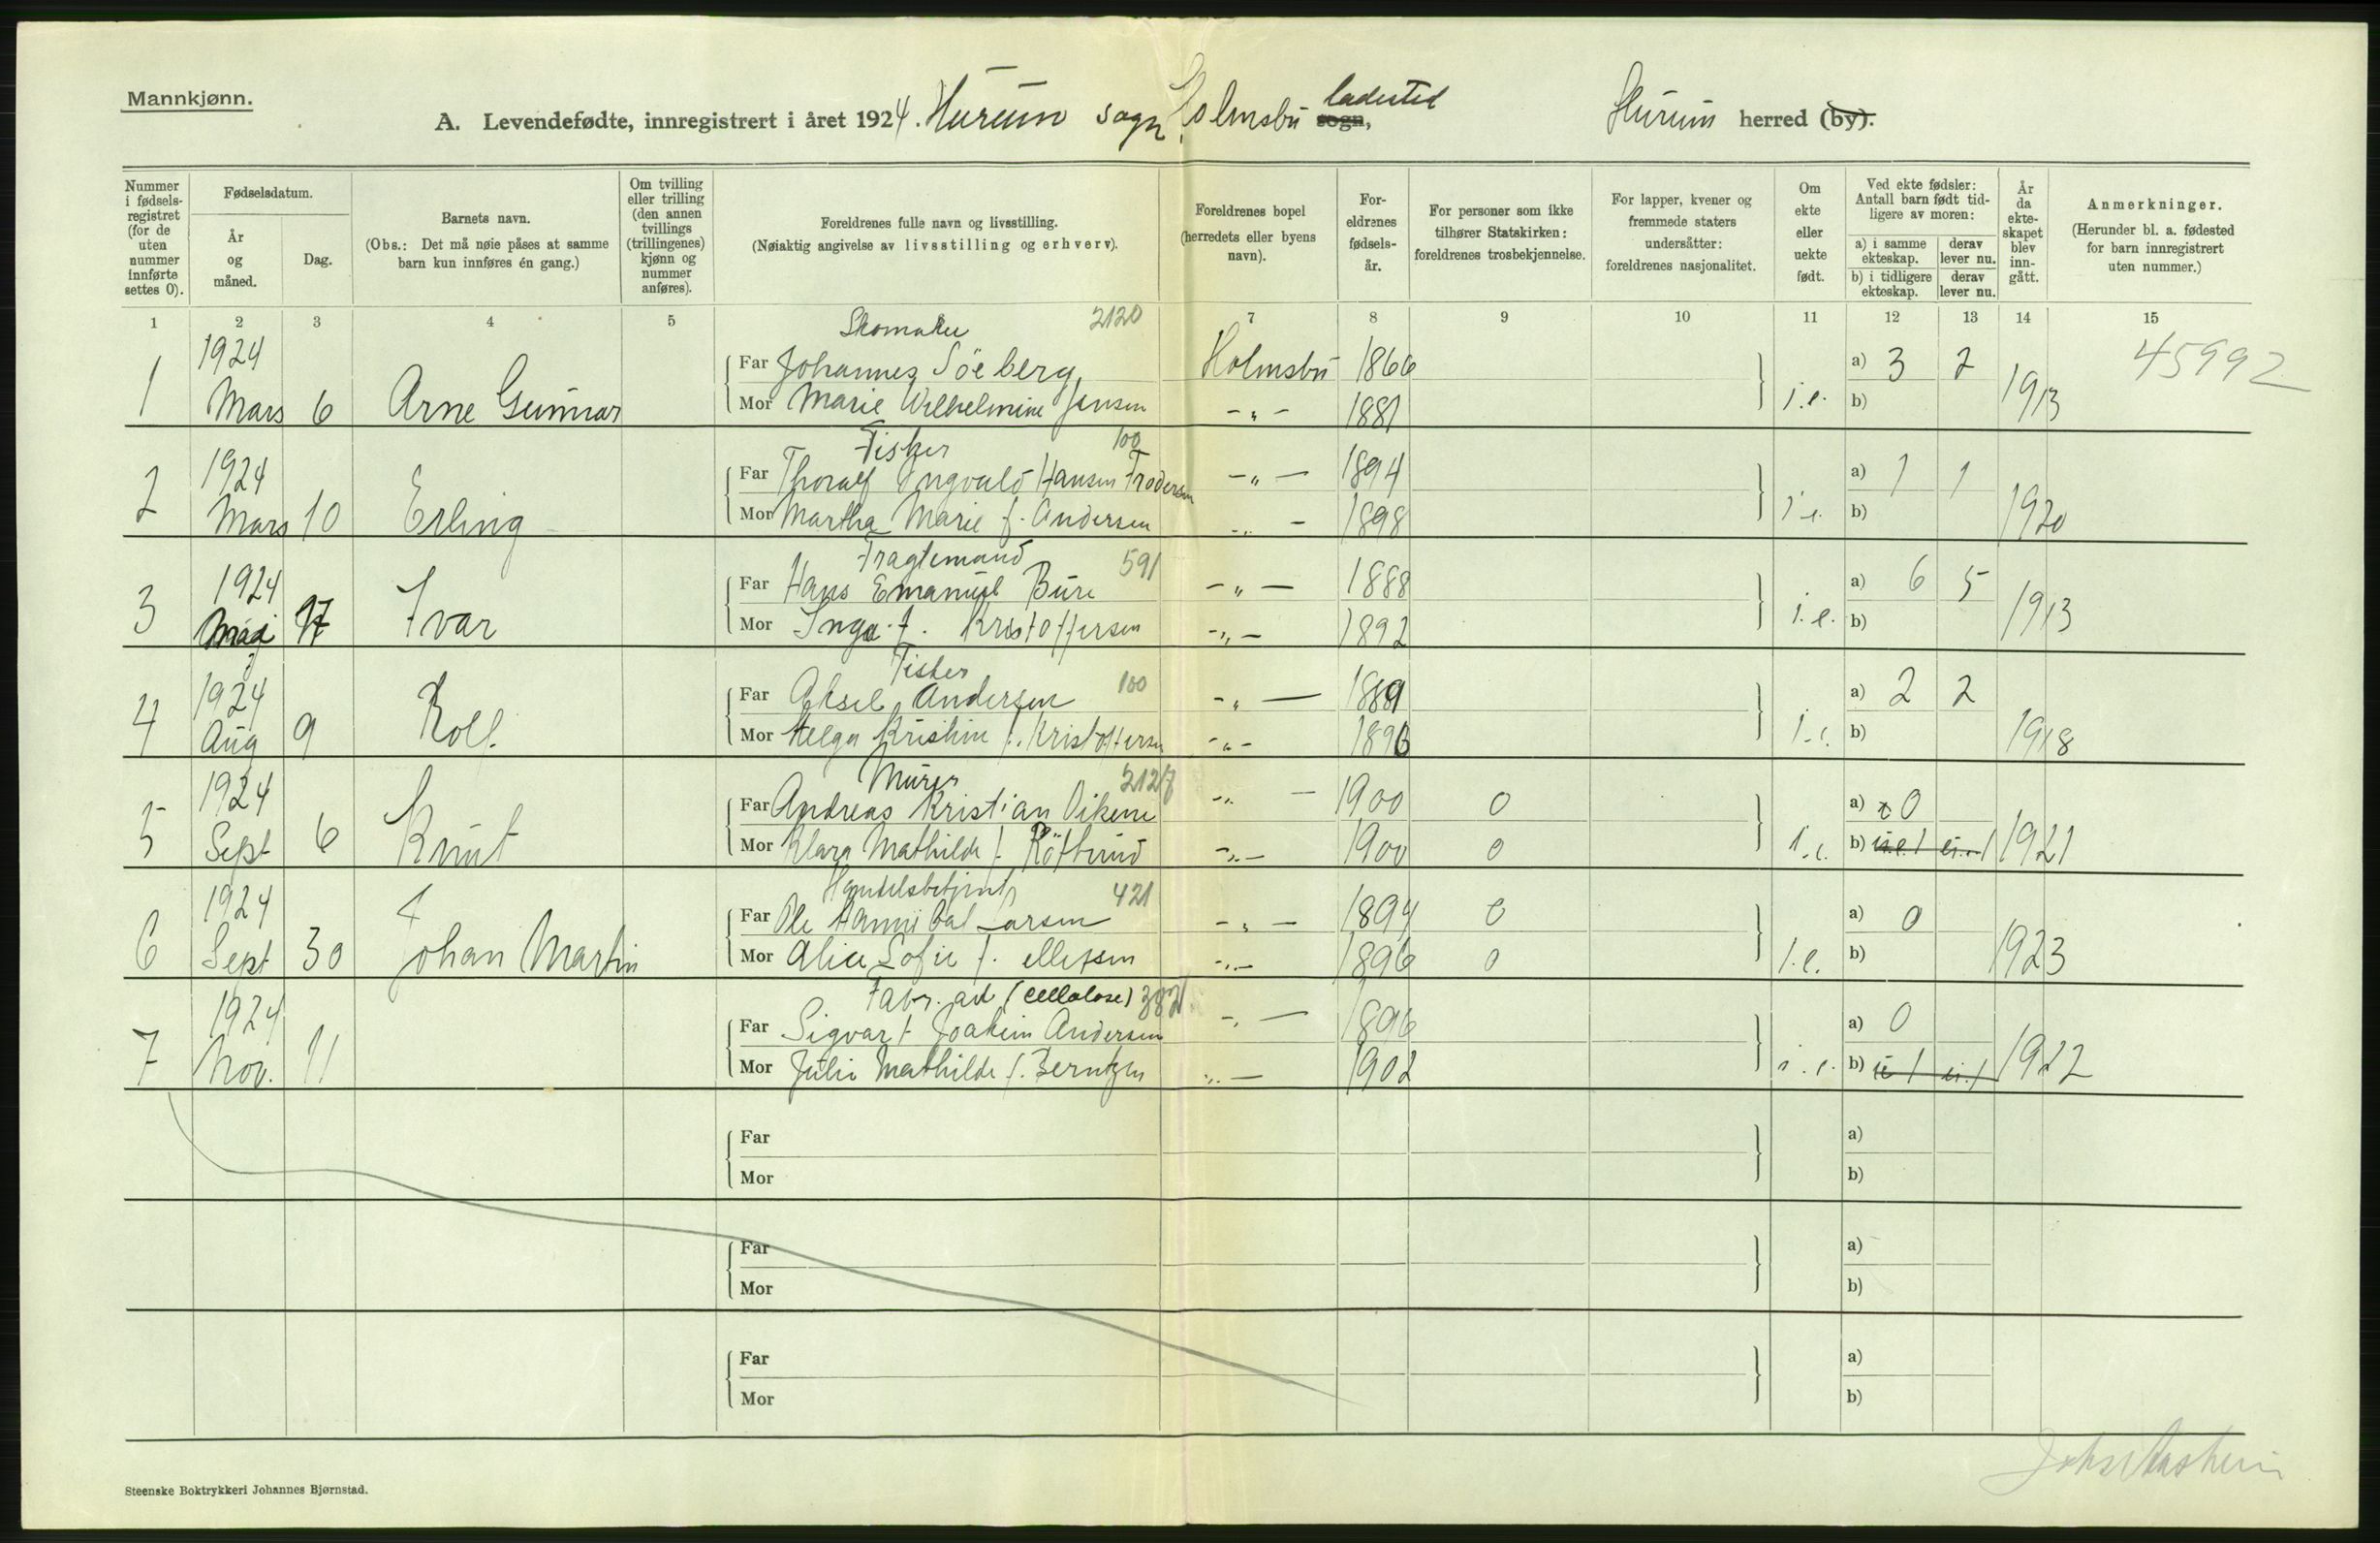 Mannkjønn.
A. Levendefødte, innregistrert i året 1924. Hurum sogn, Holmsbu ladested sogn, Hurum herred (by).
Nummer i fødselsregistret (for de uten nummer innførte settes 0).
Fødselsdatum.
År og måned.
Dag.
Barnets navn.
(Obs.: Det må nøie påses at samme barn kun innføres én gang.)
Om tvilling eller trilling (den annen tvillings (trillingenes) kjønn og nummer anføres).
Foreldrenes fulle navn og livsstilling.
(Nøiaktig angivelse av livsstilling og erhverv).
Foreldrenes bopel (herredets eller byens navn).
Foreldrenes fødselsår.
For personer som ikke tilhører Statskirken: foreldrenes trosbekjennelse.
For lapper, kvener og fremmede staters undersåtter: foreldrenes nasjonalitet.
Om ekte eller uekte født.
Ved ekte fødsler: Antall barn født tidligere av moren:
a) i samme ekteskap. derav lever nu.
b) i tidligere ekteskap. derav lever nu.
År da ekteskapet blev inngått.
Anmerkninger.
(Herunder bl. a. fødested for barn innregistrert uten nummer.)
1 2 3 4 5 7 8 9 10 11 12 13 14 15
Skomaker 2120
1 1924 Mars 6 Arne Gunnar
Far Johannes Söeberg Holmsbu 1866 a) 3 2 45992
Mor Marie Wilhelmine Jensen -„- 1881 i.e. b) 1913
Fisker 100
2 1924 Mars 10 Erling
Far Thoralf Ingvald Hansen Trodersen -„- 1894 a) 1 1
Mor Martha Marie f. Andersen -„- 1898 i.e. b) 1920
Fragtemand 591
3 1924 Mai 17 Ivar
Far Hans Emanuel Bure -„- 1888 a) 6 5
Mor Inga f. Kristoffersen -„- 1892 i.e. b) 1913
Fisker 100
4 1924 Aug 9 Rolf
Far Aksel Andersen -„- 1889 a) 2 2
Mor Helga Kristine f. Kristoffersen -„- 1896 i.e. b) 1918
Murer 2127
5 1924 Sept 6 Knut
Far Andreas Kristian Oikene -„- 1900 0 a) 0
Mor Klara Mathilde f. -„- 1900 0 i.e. b) 1921
Handelsbetjent 421
6 1924 Sept 30 Johan Martin
Far Ole Hannibal Larsen -„- 1894 0 a) 0
Mor Alice Sofie f. Ellefsen -„- 1896 0 i.e. b) 1923
Fabr. arb (cellolose) 382
7 1924 Nov. 11
Far Sigvart Joakim Andersen -„- 1896 a) 0
Mor Julie Mathilde f. Berntzen -„- 1902 i.e. b) 1922
Far a)
Mor b)
Far a)
Mor b)
Far a)
Mor b)
Steenske Boktrykkeri Johannes Bjørnstad.